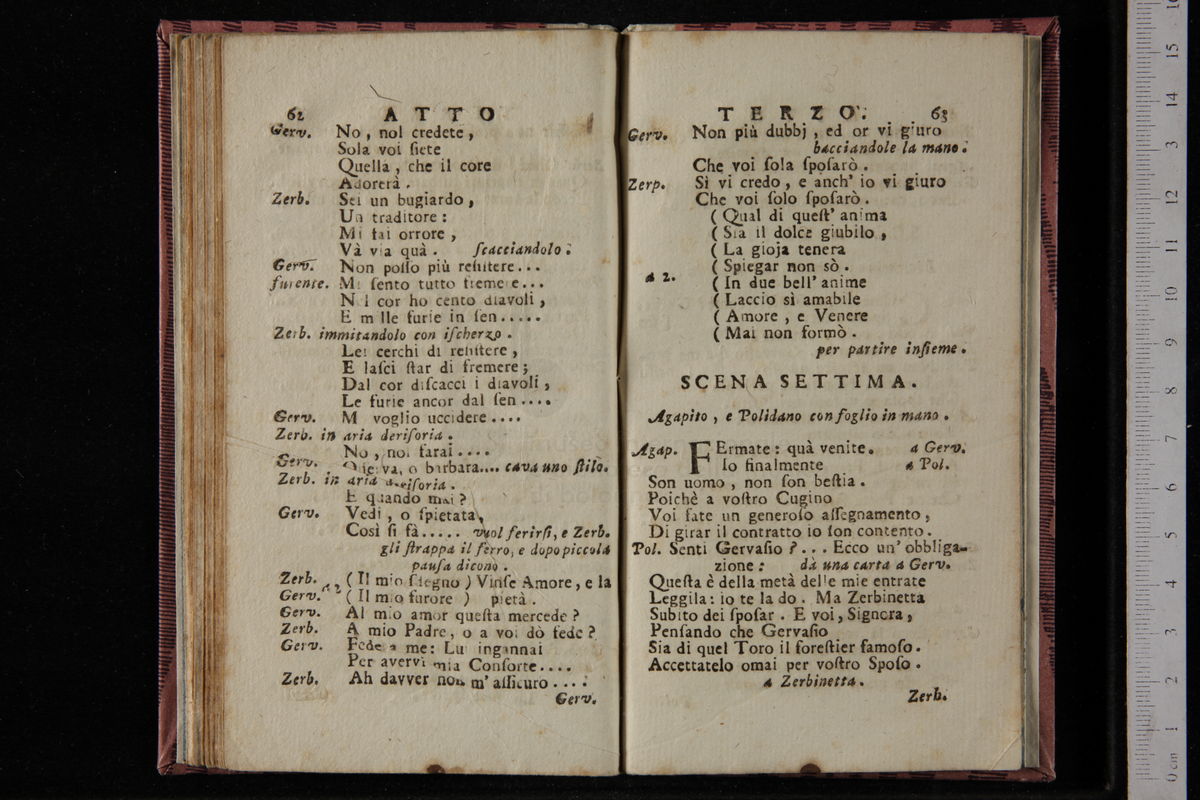 62 ATTO
Gerv. No, nol credete,
Sola voi ſiete
Quella, che il core
Adorerà.
Zerb. Sei un bugiardo,
Un traditore:
Mi fai orrore,
Và via quà. ſcacciandolo.
Gerv. Non poſſo più reſiſtere...
furente. Mi ſento tutto fremere...
Nel cor ho cento diavoli,
E mille furie in ſen.....
Zerb. immitandolo con iſcherzo.
Lei cerchi di reſiſtere,
E laſci ſtar di fremere;
Dal cor diſcacci i diavoli,
Le furie ancor dal ſen....
Gerv. M voglio uccidere....
Zerb. in aria deriſoria.
No, nol farai....
Gerv. Oſſerva, o barbara.... cava uno ſtilo.
Zerb. in aria deriſoria.
E quando mai?
Gerv. Vedi, o ſpietata,
Così ſi fà..... vuol ferirſi, e Zerb.
gli ſtrappa il ferro, e dopo piccola
pauſa dicono.
Zerb. a 2 (Il mio ſdegno) Vinſe Amore, e la
Gerv. (Il mio furore) pietà.
Gerv. Al mio amor queſta mercede?
Zerb. A mio Padre, o a voi dò fede?
Gerv. Fede a me: Lui ingannai
Per avervi mia Conſorte....
Zerb. Ah davver non m'aſſicuro....
Gerv.
TERZO. 63
Gerv. Non più dubbj, ed or vi giuro
bacciandole la mano.
Che voi ſola ſpoſarò.
Zerp. Sì vi credo, e anch' io vi giuro
Che voi ſolo ſpoſarò.
( Qual di queſt' anima
( Sia il dolce giubilo,
( La gioja tenera
( Spiegar non sò.
a 2. ( In due bell' anime
( Laccio sì amabile
( Amore, e Venere
( Mai non formò.
per partire inſieme.
SCENA SETTIMA.
Agapito, e Polidano con foglio in mano.
Agap. FErmate: quà venite. a Gerv.
Io finalmente a Pol.
Son uomo, non ſon beſtia.
Poichè a voſtro Cugino
Voi fate un generoſo aſſegnamento,
Di girar il contratto io ſon contento.
Pol. Senti Gervaſio?... Ecco un' obbliga-
zione: dà una carta a Gerv.
Queſta è della metà delle mie entrate
Leggila: io te la do. Ma Zerbinetta
Subito dei ſpoſar. E voi, Signora,
Penſando che Gervaſio
Sia di quel Toro il foreſtier famoſo.
Accettatelo omai per voſtro Spoſo.
a Zerbinetta.
Zerb.
0 cm 1 2 3 4 5 6 7 8 9 10 11 12 13 14 15 16